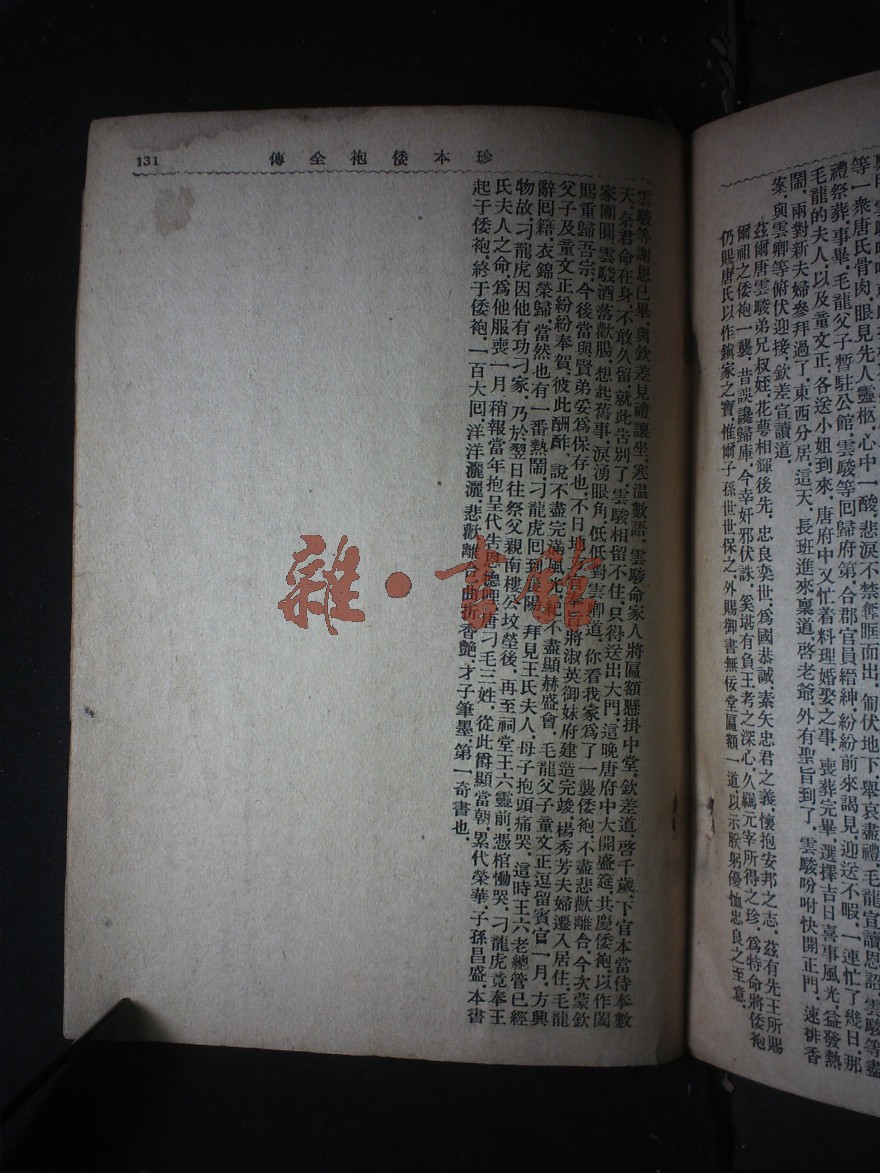 等一衆唐氏骨肉．眼見先人靈柩．心中一酸．悲淚不禁奪眶而出．匍伏地下．舉哀盡禮．毛龍宣讀恩詔．雲駿等盡
禮祭葬．事畢．毛龍父子暫駐公館．雲駿等回歸府第．合郡官員縉紳．紛紛前來謁見．迎送不暇．一連忙了幾日．那
毛龍的夫人．以及童文正．各送小姐到來．唐府中又忙着料理婚娶之事．喪葬完畢．選擇吉日喜事風光．益發熱
鬧．兩對新夫婦參拜過了．東西分居．這天．長班進來稟道．啓老爺．外有聖旨到了．雲駿吩咐快開正門．速排香
案．與雲卿等俯伏迎接．欽差宣讀道．
茲爾唐雲駿弟兄叔姪．花萼相輝後先．忠良奕世．爲國恭誠．素矢忠君之義．懷抱安邦之志．茲有先王所賜
爾祖之倭袍一襲．昔誤讒歸庫．今幸奸邪伏誅．奚堪有負王考之深心．久羈元宰所得之珍．爲特命將倭袍
仍賜唐氏以作鎮家之寶．惟爾子孫世世保之．外賜御書無佞堂匾額一道．以示朕躬優恤忠良之至意．
珍本倭袍全傳
131
雲駿等謝恩已畢．與欽差見禮讓坐．寒溫數語．雲駿命家人將匾額懸掛中堂．欽差道．啓千歲．下官本當侍奉數
天．奈君命在身．不敢久留．就此告別了．雲駿相留不住．只得送出大門．這晚唐府中大開盛筵．共慶倭袍．以作闔
家團圓．雲駿酒落歡腸．想起舊事．淚湧眼角．低低對雲卿道．你看我家爲了一襲倭袍．不盡悲歡離合今次蒙欽
賜重歸吾宗．今後當與賢弟妥爲保存也．不日地方官奉旨將淑英御妹府建造完竣．楊秀芳夫婦遷入居住．毛龍
父子及童文正紛紛奉賀．彼此酬酢．說不盡完滿風光．不盡顯赫盛會．毛龍父子童文正逗留賓官一月．方興
辭回籍．衣錦榮歸．當然也有一番熱鬧．刁龍虎回到襄陽．拜見王氏夫人．母子抱頭痛哭．這時王六老總管已經
物故．刁龍虎因他有功刁家．乃於翌日往祭父親南樓公坟塋後．再至祠堂王六靈前．憑棺慟哭．刁龍虎竟奉王
氏夫人之命．爲他服喪一月．稍報當年抱呈代告恩德．唐刁毛三姓．從此爵顯當朝．累代榮華．子孫昌盛．本書
起于倭袍．終于倭袍．一百大回．洋洋灑灑．悲歡離合曲折香艷．才子筆墨．第一奇書也．
雜·書館